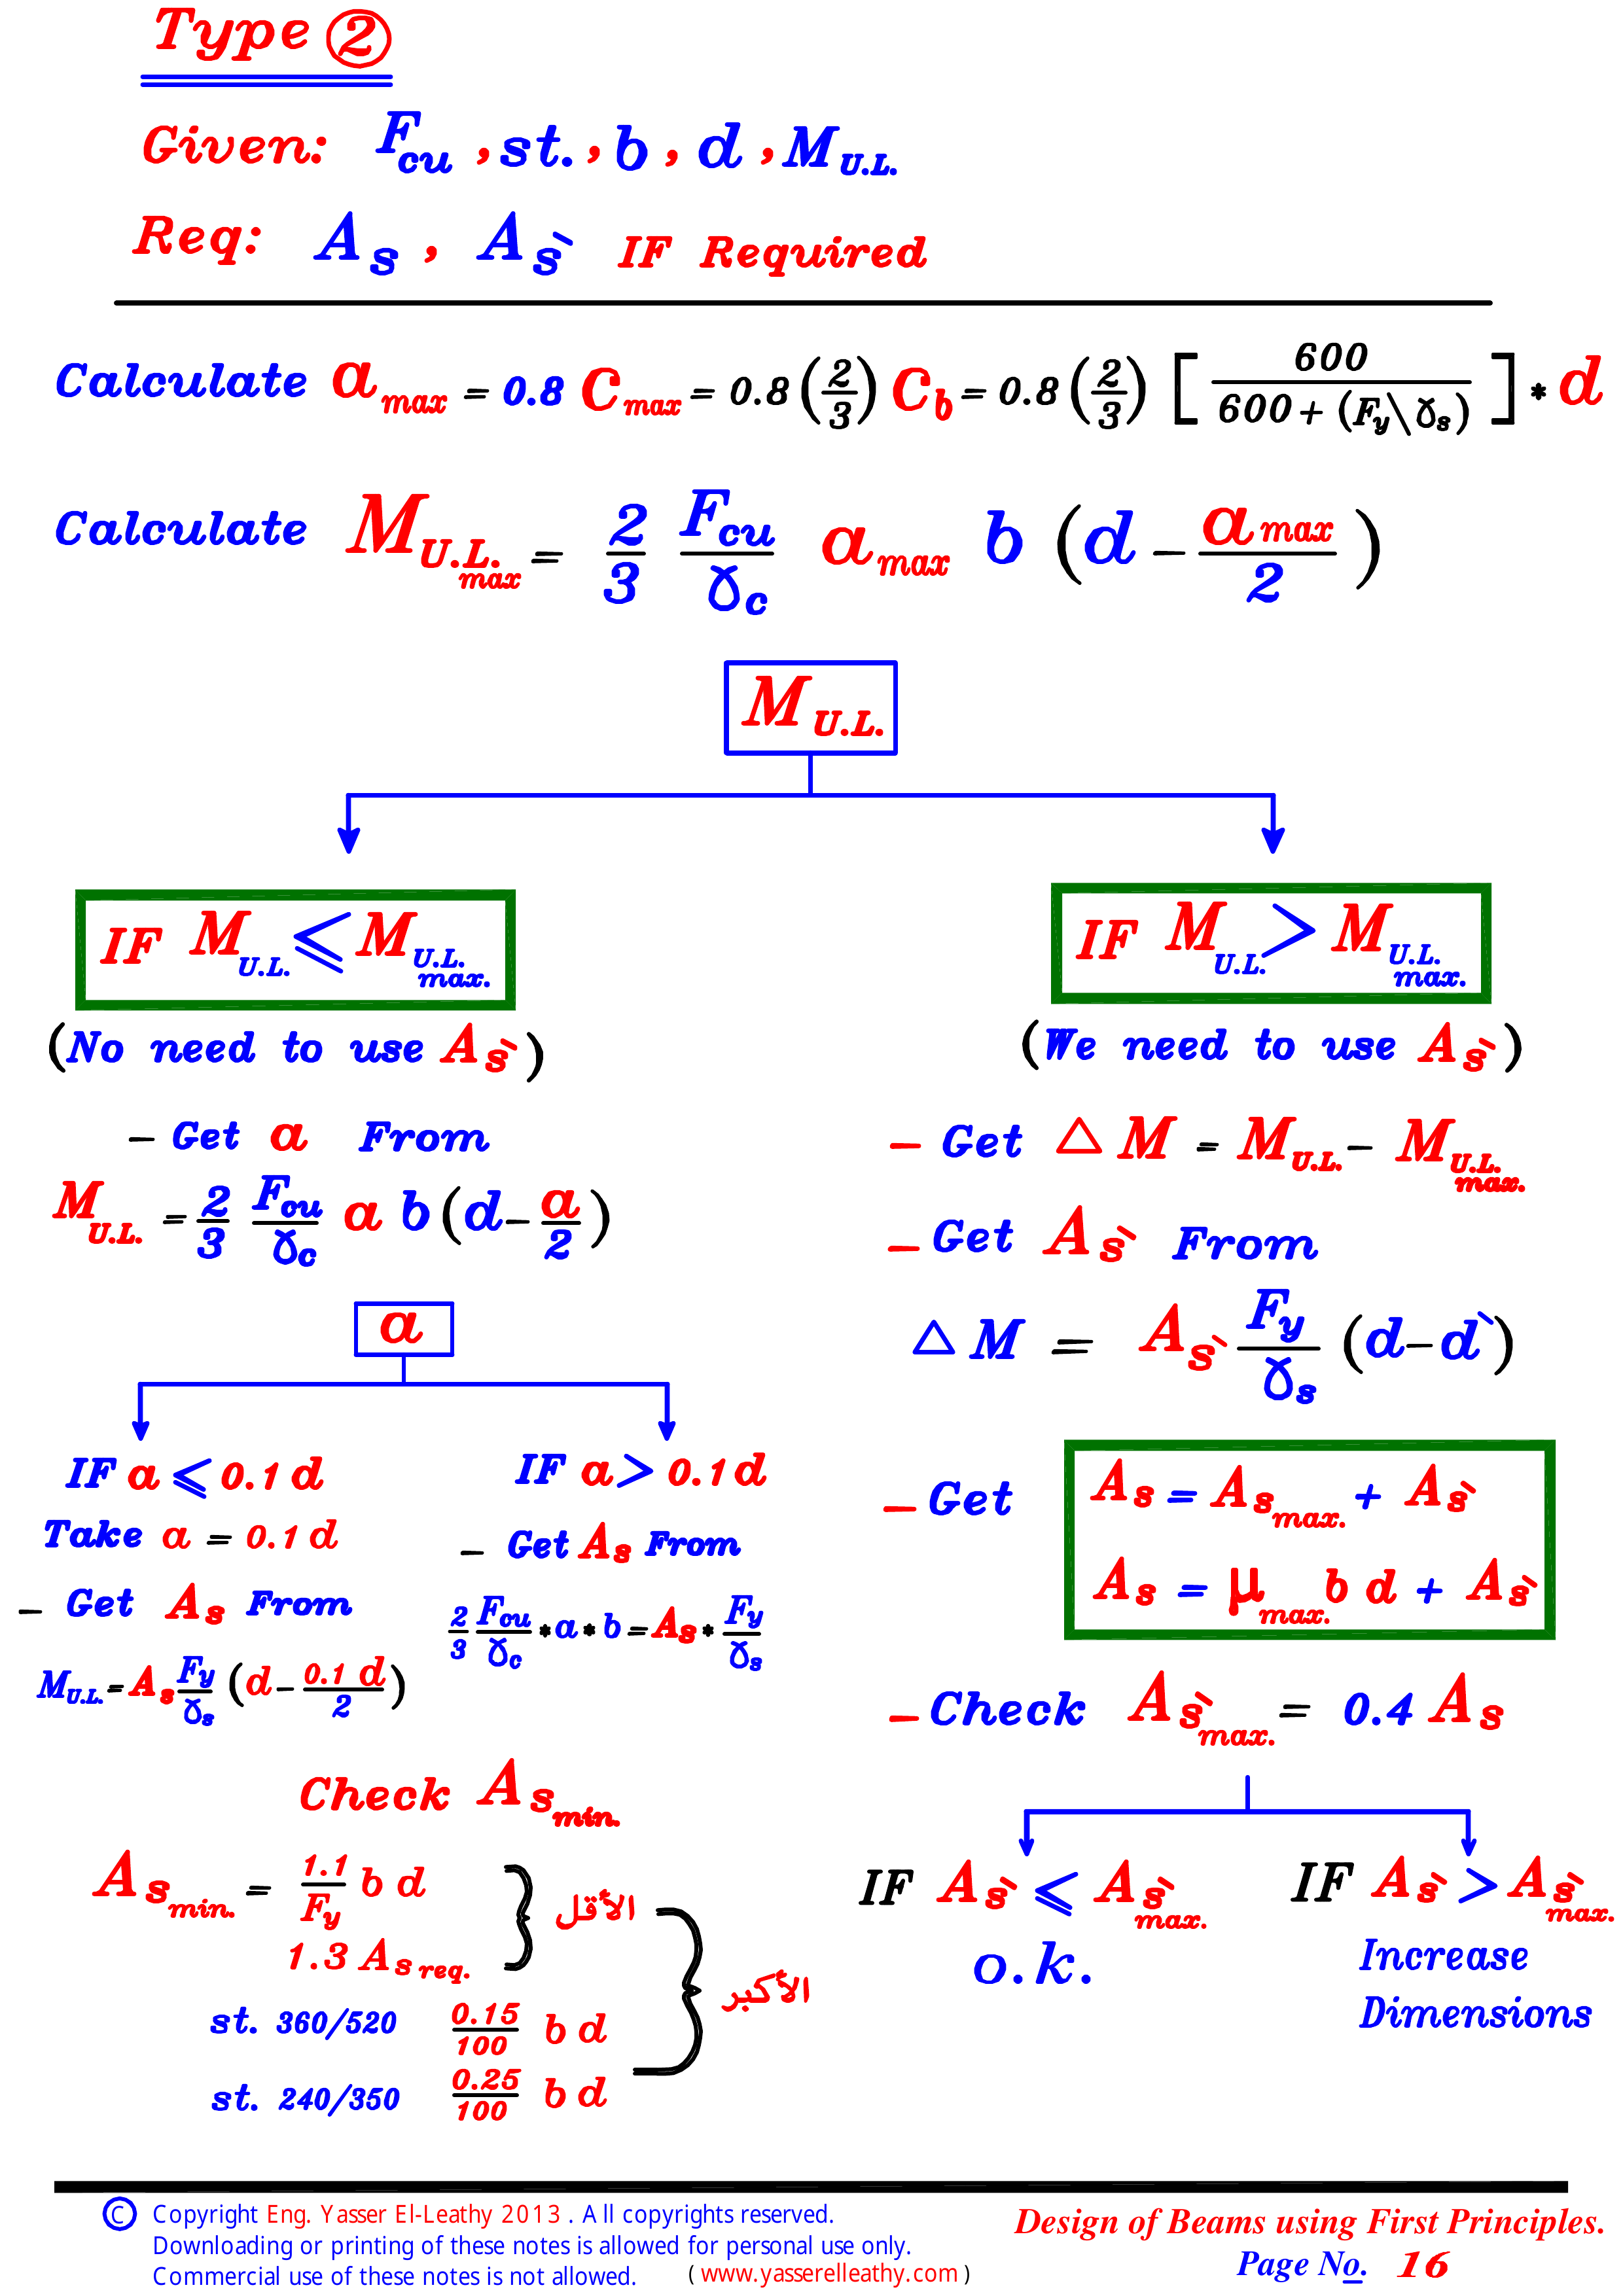 Type ②
Given: F_cu , st. , b , d , M_U.L.
Req: A_s , A_s` IF Required
Calculate a_max = 0.8 C_max = 0.8 (2/3) C_b = 0.8 (2/3) [ 600 / (600 + (F_y\γ_s)) ] * d
Calculate M_U.L.max = 2/3 F_cu/γ_c a_max b (d - a_max/2)
M_U.L.
IF M_U.L. ⩽ M_U.L.max.
(No need to use A_s`)
- Get a From
M_U.L. = 2/3 F_cu/γ_c a b (d - a/2)
a
IF a ⩽ 0.1 d
Take a = 0.1 d
- Get A_s From
M_U.L. = A_s F_y/γ_s (d - 0.1 d/2)
IF a > 0.1 d
- Get A_s From
2/3 F_cu/γ_c * a * b = A_s * F_y/γ_s
Check A_s min.
A_s min. = 1.1/F_y b d
1.3 A_s req.
الأقل
st. 360/520 0.15/100 b d
st. 240/350 0.25/100 b d
الأكبر
IF M_U.L. > M_U.L.max.
(We need to use A_s`)
- Get △M = M_U.L. - M_U.L.max.
- Get A_s` From
△M = A_s` F_y/γ_s (d - d`)
- Get A_s = A_s max. + A_s`
A_s = μ_max. b d + A_s`
- Check A_s`max. = 0.4 A_s
IF A_s` ⩽ A_s`max.
o.k.
IF A_s` > A_s`max.
Increase
Dimensions
© Copyright Eng. Yasser El-Leathy 2013 . All copyrights reserved.
Downloading or printing of these notes is allowed for personal use only.
Commercial use of these notes is not allowed. ( www.yasserelleathy.com )
Design of Beams using First Principles.
Page No. 16